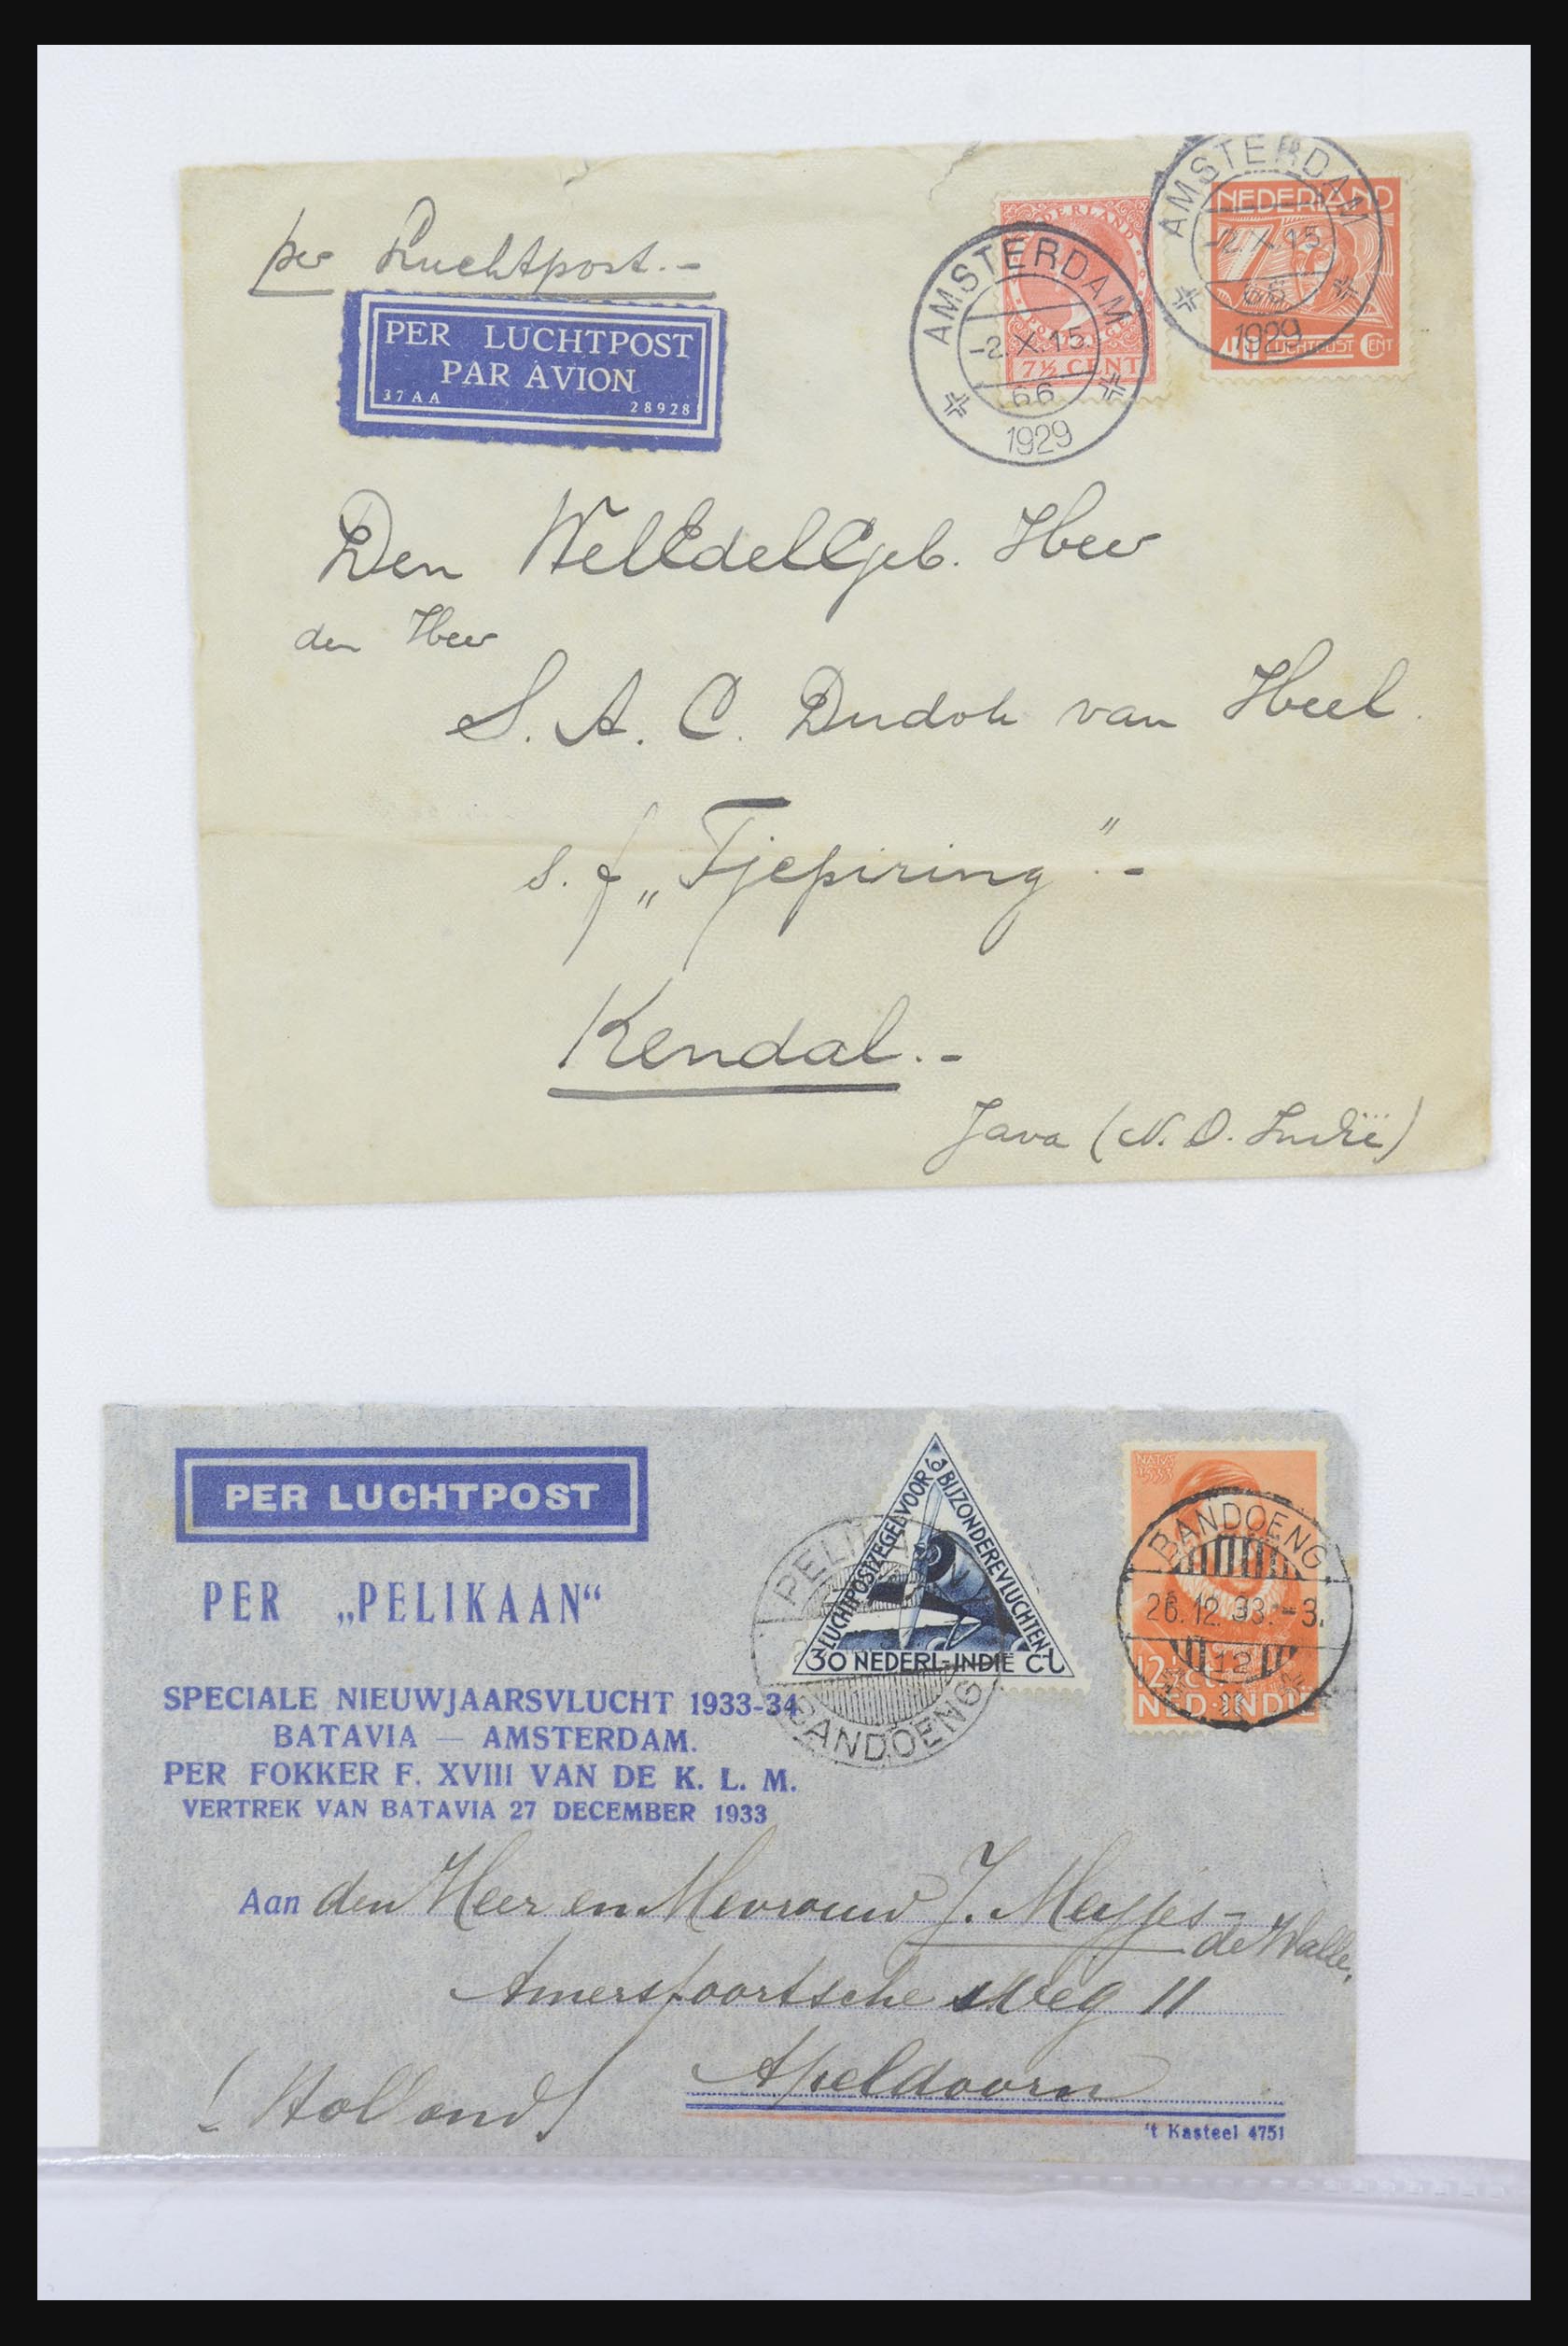 per Luchtpost.-
PER LUCHTPOST
PAR AVION
37AA 28928
NEDERLAND
7½ CENT
AMSTERDAM
-2.X.15.
66
1929
NEDERLAND
40 LUCHTPOST CENT
AMSTERDAM
-2.X.15
66
1929
Den WelEdelGeb. Heer
den Heer
S. A. C. Dudok van Heel.
s. f „Tjepiring".-
Kendal.-
Java (N. O. Indië)
PER LUCHTPOST
PER „PELIKAAN“
SPECIALE NIEUWJAARSVLUCHT 1933-34
BATAVIA — AMSTERDAM.
PER FOKKER F. XVIII VAN DE K. L. M.
VERTREK VAN BATAVIA 27 DECEMBER 1933
LUCHTPOSTZEGEL VOOR BIJZONDERE VLUCHTEN
30 NEDERL-INDIË CT
BANDOENG
BANDOENG
26.12.33.-3.
12
12½ ct
NED-INDIË
Aan den Heer en Mevrouw J. Meyjes-
de Walle,
Amersfoortsche Weg 11
Apeldoorn
(Holland)
't Kasteel 4751